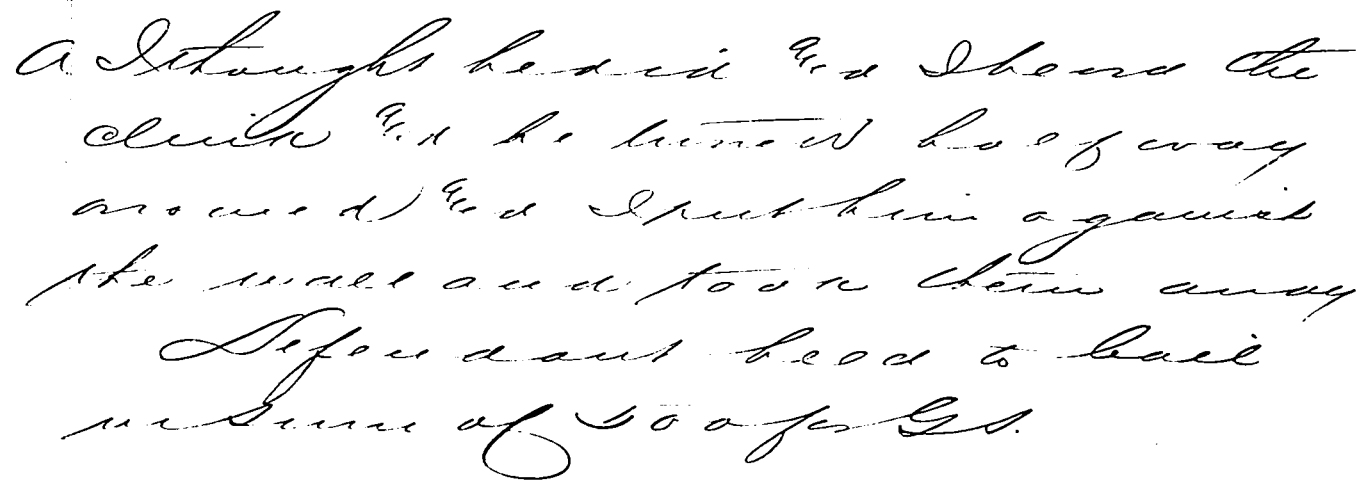 A I thought he did and I heard the
click and he turned half way
around and I put him against
the wall and took them away
Defendant held to bail
in sum of 500 for G S.